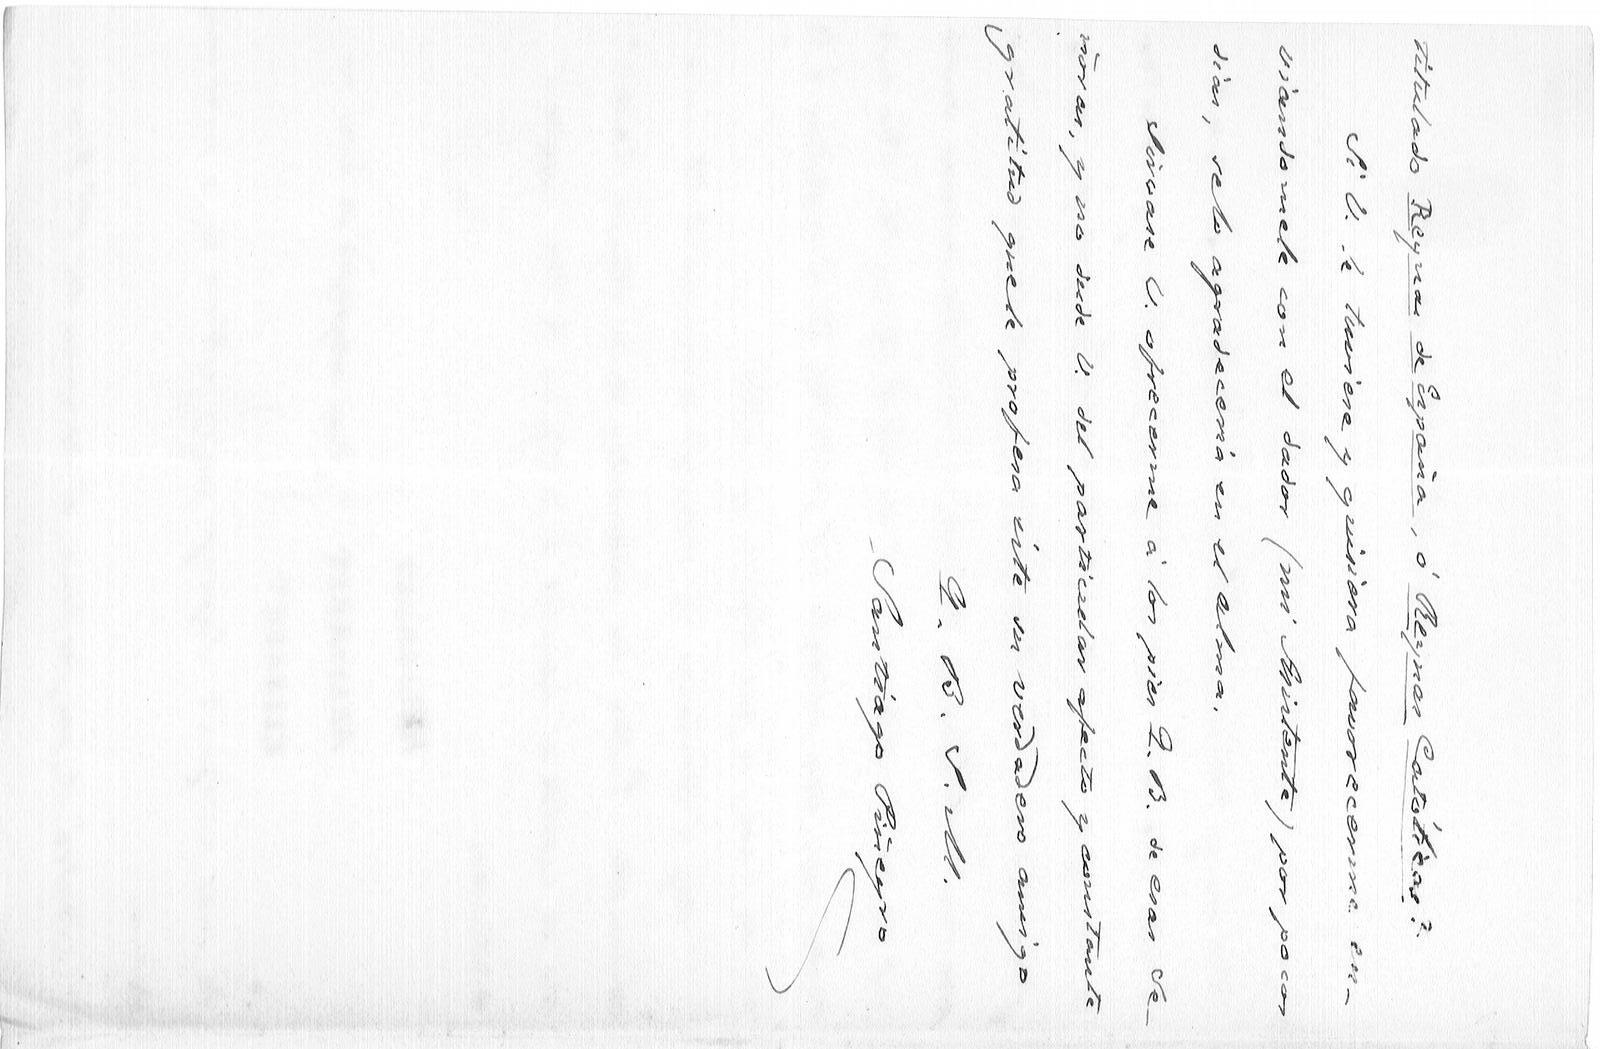 titulado Reynas de España, ó Reynas Católicas?
Si V. le tuviera y quisiera favorecerme en-
viandomele con el dador (mi Asistente) por pocos
dias, selo agradeceriá en el alma.
Sirvase V. ofrecerme á los pies Q. B. de esas Se-
ñoras, y no dude V. del particular afecto y constante
gratitud quele profesa éste su verdadero amigo
Q. B. S. M.
Santiago Piñeyro